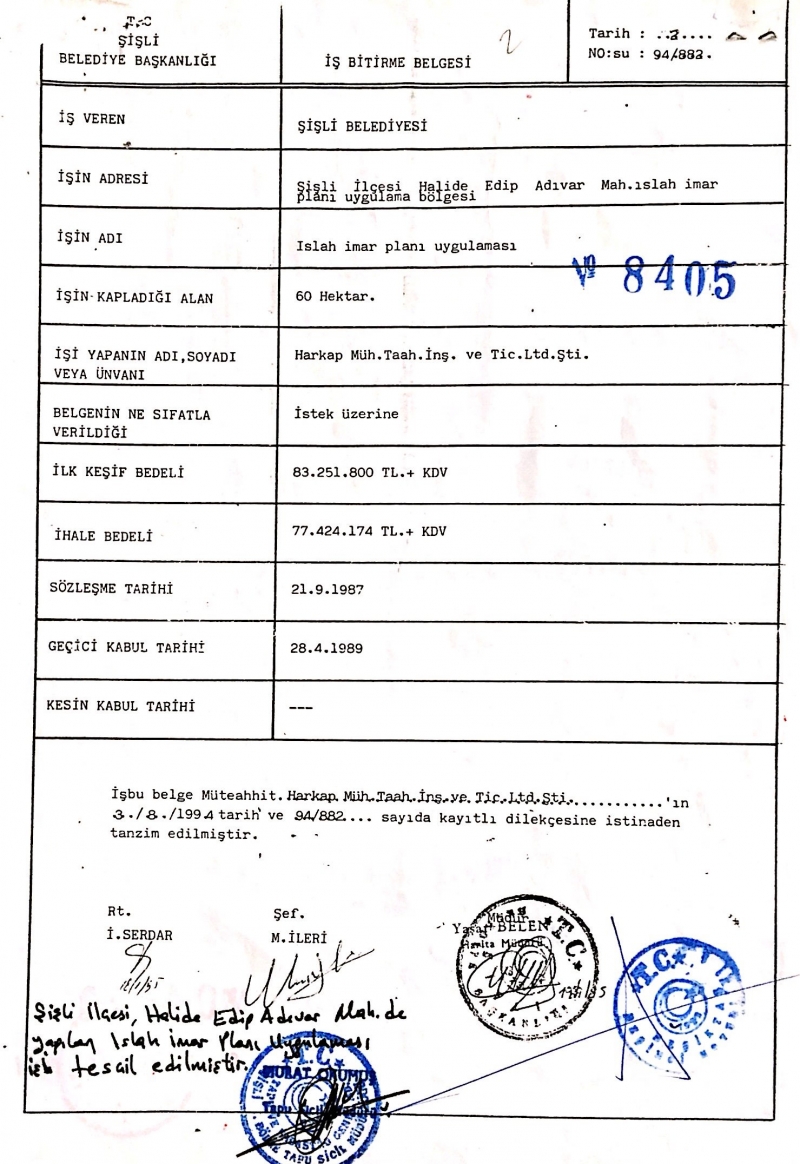 T.C
ŞİŞLİ
BELEDİYE BAŞKANLIĞI
İŞ BİTİRME BELGESİ
2
Tarih :
NO:su : 94/882.
İŞ VEREN
ŞİŞLİ BELEDİYESİ
İŞİN ADRESİ
Şişli İlçesi Halide Edip Adıvar Mah.ıslah imar
planı uygulama bölgesi
İŞİN ADI
Islah imar planı uygulaması
Nº 8405
İŞİN KAPLADIĞI ALAN
60 Hektar.
İŞİ YAPANIN ADI,SOYADI
VEYA ÜNVANI
Harkap Müh.Taah.İnş. ve Tic.Ltd.Şti.
BELGENİN NE SIFATLA
VERİLDİĞİ
İstek üzerine
İLK KEŞİF BEDELİ
83.251.800 TL.+ KDV
İHALE BEDELİ
77.424.174 TL.+ KDV
SÖZLEŞME TARİHİ
21.9.1987
GEÇİCİ KABUL TARİHİ
28.4.1989
KESİN KABUL TARİHİ
---
İşbu belge Müteahhit.Harkap Müh.Taah.İnş.ve Tic.Ltd.Şti............'ın
3./8./1994 tarih ve 94/882.... sayıda kayıtlı dilekçesine istinaden
tanzim edilmiştir.
Rt.
İ.SERDAR
Şef.
M.İLERİ
Müdür
Yaşar BELEN
Harita Müdürü
T.C.
BAŞKANLIĞI
T.C.
Şişli İlçesi, Halide Edip Adıvar Mah. de
yapılan Islah İmar Planı Uygulaması
işi tescil edilmiştir.
T.C.
MURAT
Tapu Sicil Müdürü
BÖLGE TAPU SİCİL